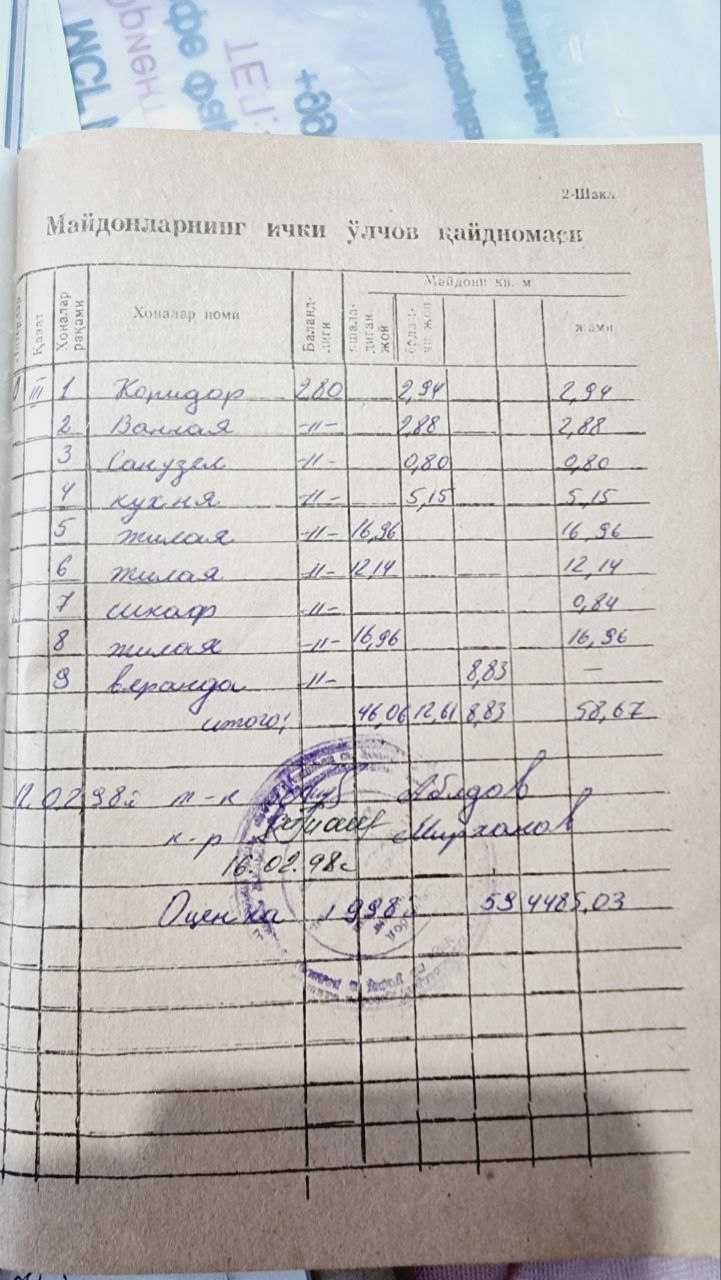 2-Шакл
Майдонларнинг ички ўлчов қайдномаси
Қават
Хоналар рақами
Хоналар номи
Баландлиги
яшаладиган жой
Майдони кв. м
жами
III 1 Коридор 280 2,94 2,94
2 Ванная -"- 2,88 2,88
3 Санузел -"- 0,80 0,80
4 кухня -"- 5,15 5,15
5 жилая -"- 16,96 16,96
6 жилая -"- 12,14 12,14
7 шкаф -"- 0,84
8 жилая -"- 16,96 16,96
9 веранда -"- 8,83 —
итого: 46,06 12,61 8,83 58,67
12.02.98г т-к
к-р Мирханов
16.02.98г
Оценка 594485.03